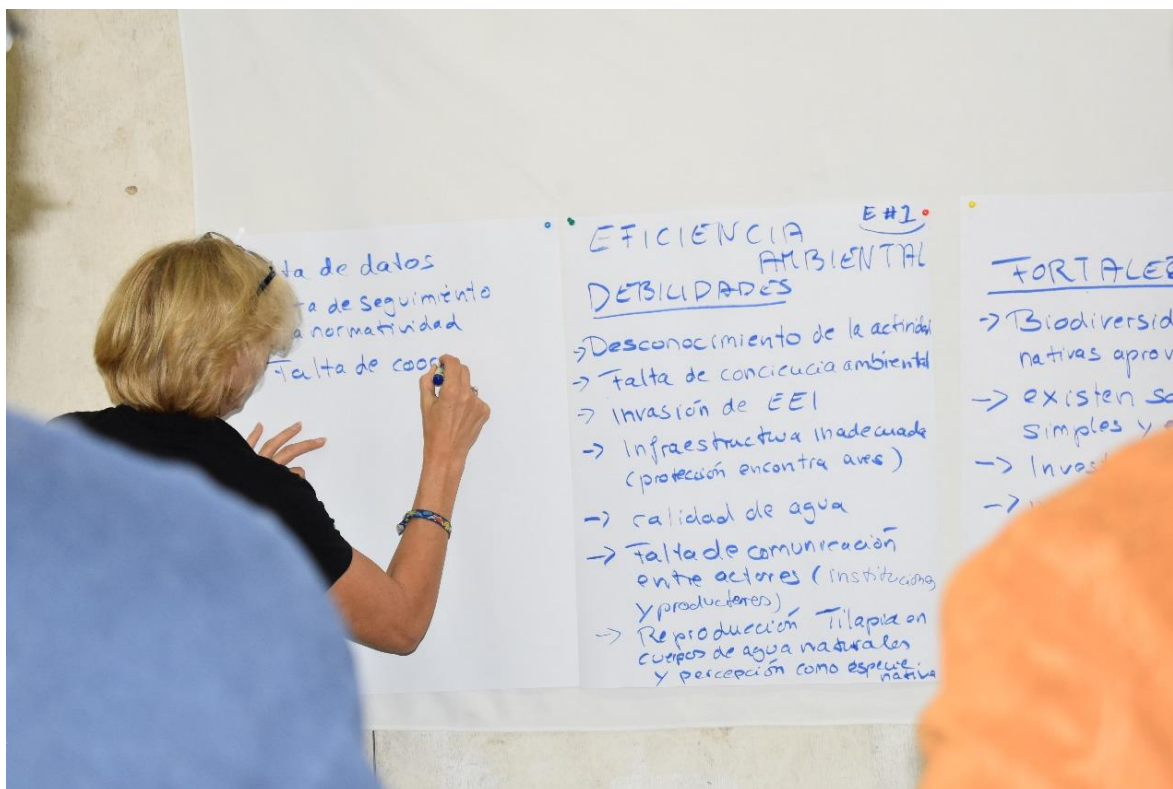 de datos
de seguimiento
normatividad
Falta de
E #1
EFICIENCIA
AMBIENTAL
DEBILIDADES
-> Desconocimiento de la actividad
-> Falta de conciencia ambiental
-> Invasión de EEI
-> Infraestructura inadecuada
(protección encontra aves)
-> calidad de agua
-> Falta de comunicación
entre actores (instituciones
y productores)
-> Reproducción Tilapia en
cuerpos de agua naturales
y percepción como especie
nativa
-> 
nativas
-> existen
simples y
->